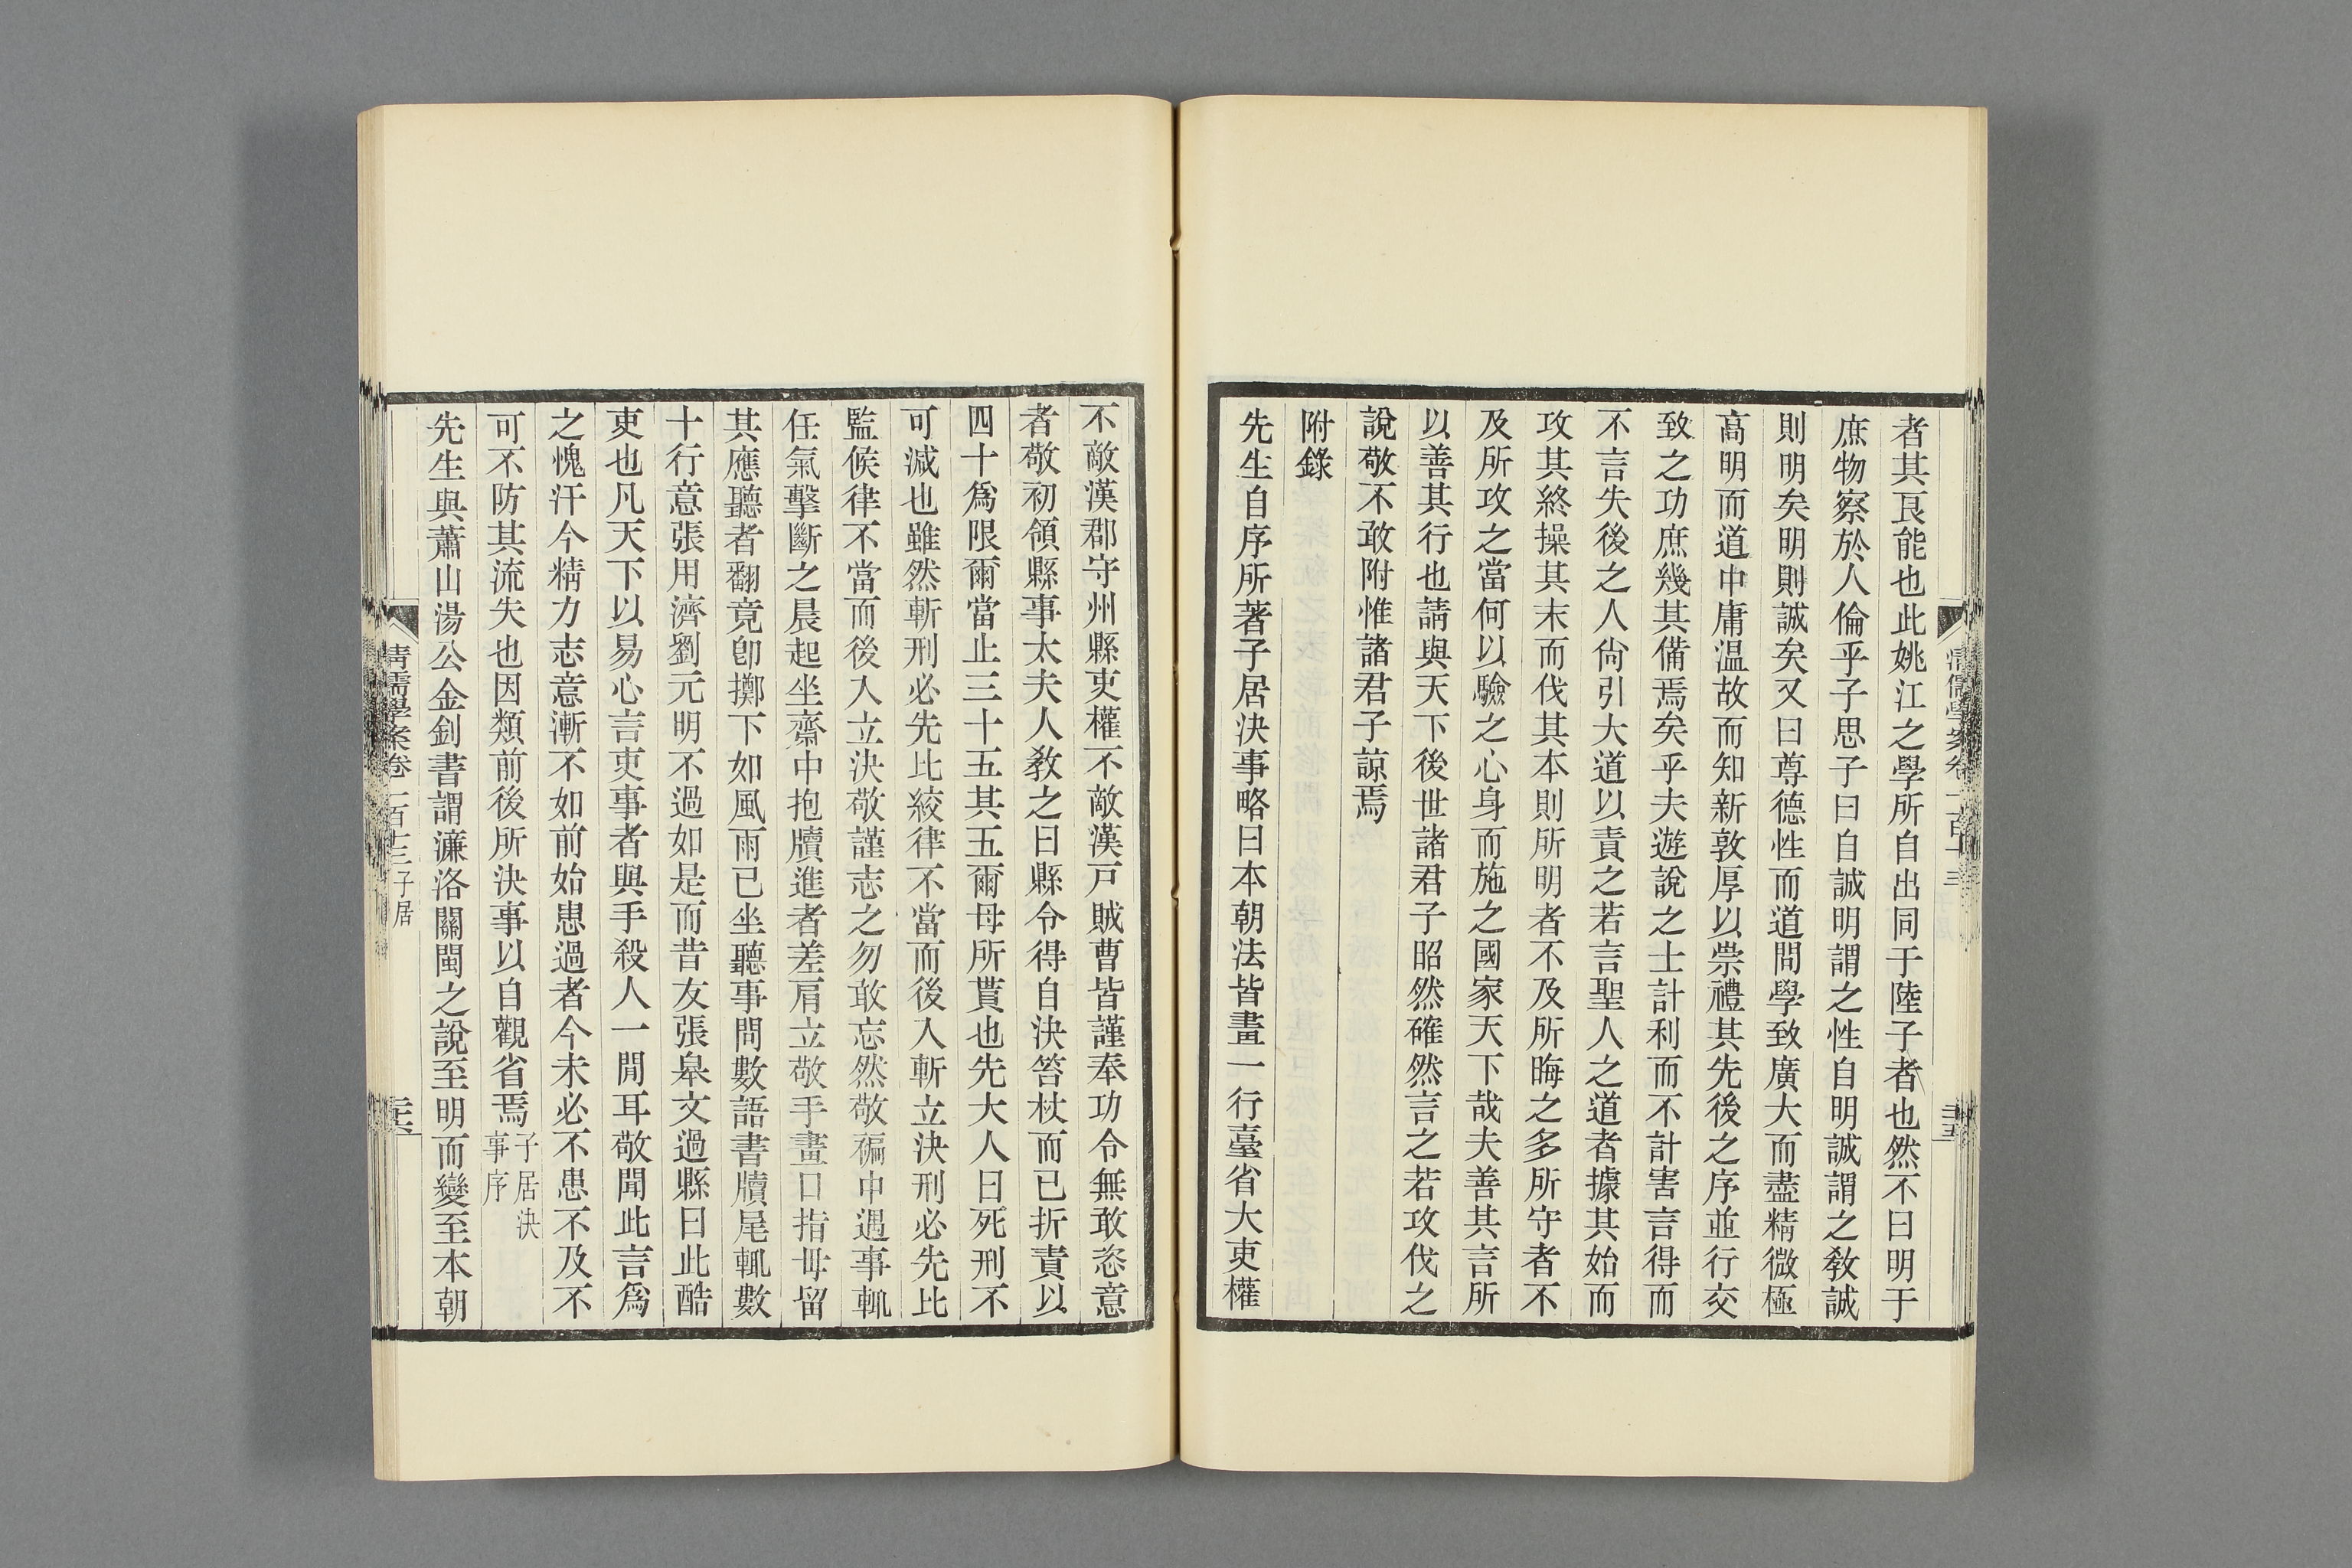 者其良能也此姚江之學所自出同于陸子者也然不曰明于
庶物察於人倫乎子思子曰自誠明謂之性自明誠謂之敎誠
則明矣明則誠矣又曰尊德性而道問學致廣大而盡精微極
高明而道中庸温故而知新敦厚以崇禮其先後之序並行交
致之功庶幾其備焉矣乎夫遊說之士計利而不計害言得而
不言失後之人尙引大道以責之若言聖人之道者據其始而
攻其終操其末而伐其本則所明者不及所晦之多所守者不
及所攻之當何以驗之心身而施之國家天下哉夫善其言所
以善其行也請與天下後世諸君子昭然確然言之若攻伐之
說敬不敢附惟諸君子諒焉
附錄
先生自序所著子居決事略曰本朝法皆畫一行臺省大吏權
不敵漢郡守州縣吏權不敵漢戶賊曹皆謹奉功令無敢恣意
者敬初領縣事太夫人敎之曰縣令得自決笞杖而已折責以
四十爲限爾當止三十五其五爾母所貰也先大人曰死刑不
可減也雖然斬刑必先比絞律不當而後入斬立決刑必先比
監候律不當而後入立決敬謹志之勿敢忘然敬褊中遇事輒
任氣擊斷之晨起坐齋中抱牘進者差肩立敬手畫口指毋留
其應聽者翻竟卽擲下如風雨已坐聽事問數語書牘尾輒數
十行意張用濟劉元明不過如是而昔友張皋文過縣曰此酷
吏也凡天下以易心言吏事者與手殺人一閒耳敬聞此言爲
之愧汗今精力志意漸不如前始患過者今未必不患不及不
可不防其流失也因類前後所決事以自觀省焉子居決事序
先生與蕭山湯公金釗書謂濂洛關閩之說至明而變至本朝
清儒學案卷一百十三 子居